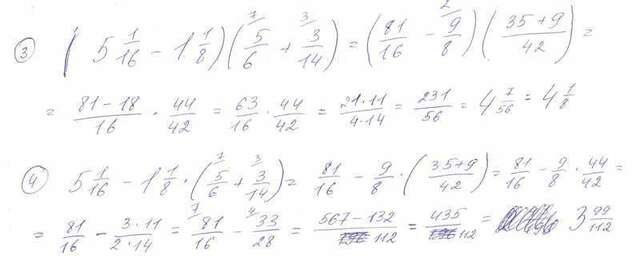 ③ (5 1/16 − 1 1/8)(⁷5/6 + ³3/14) = (81/16 − ²9/8)(35+9/42) =
= 81−18/16 · 44/42 = 63/16 · 44/42 = 21·11/4·14 = 231/56 = 4 7/56 = 4 1/8
④ 5 1/16 − 1 1/8 · (⁷5/6 + ³3/14) = 81/16 − 9/8 · (35+9/42) = 81/16 − 9/8 · 44/42 =
= 81/16 − 3·11/2·14 = ⁷81/16 − ⁴33/28 = 567−132/112 = 435/112 = 3 99/112